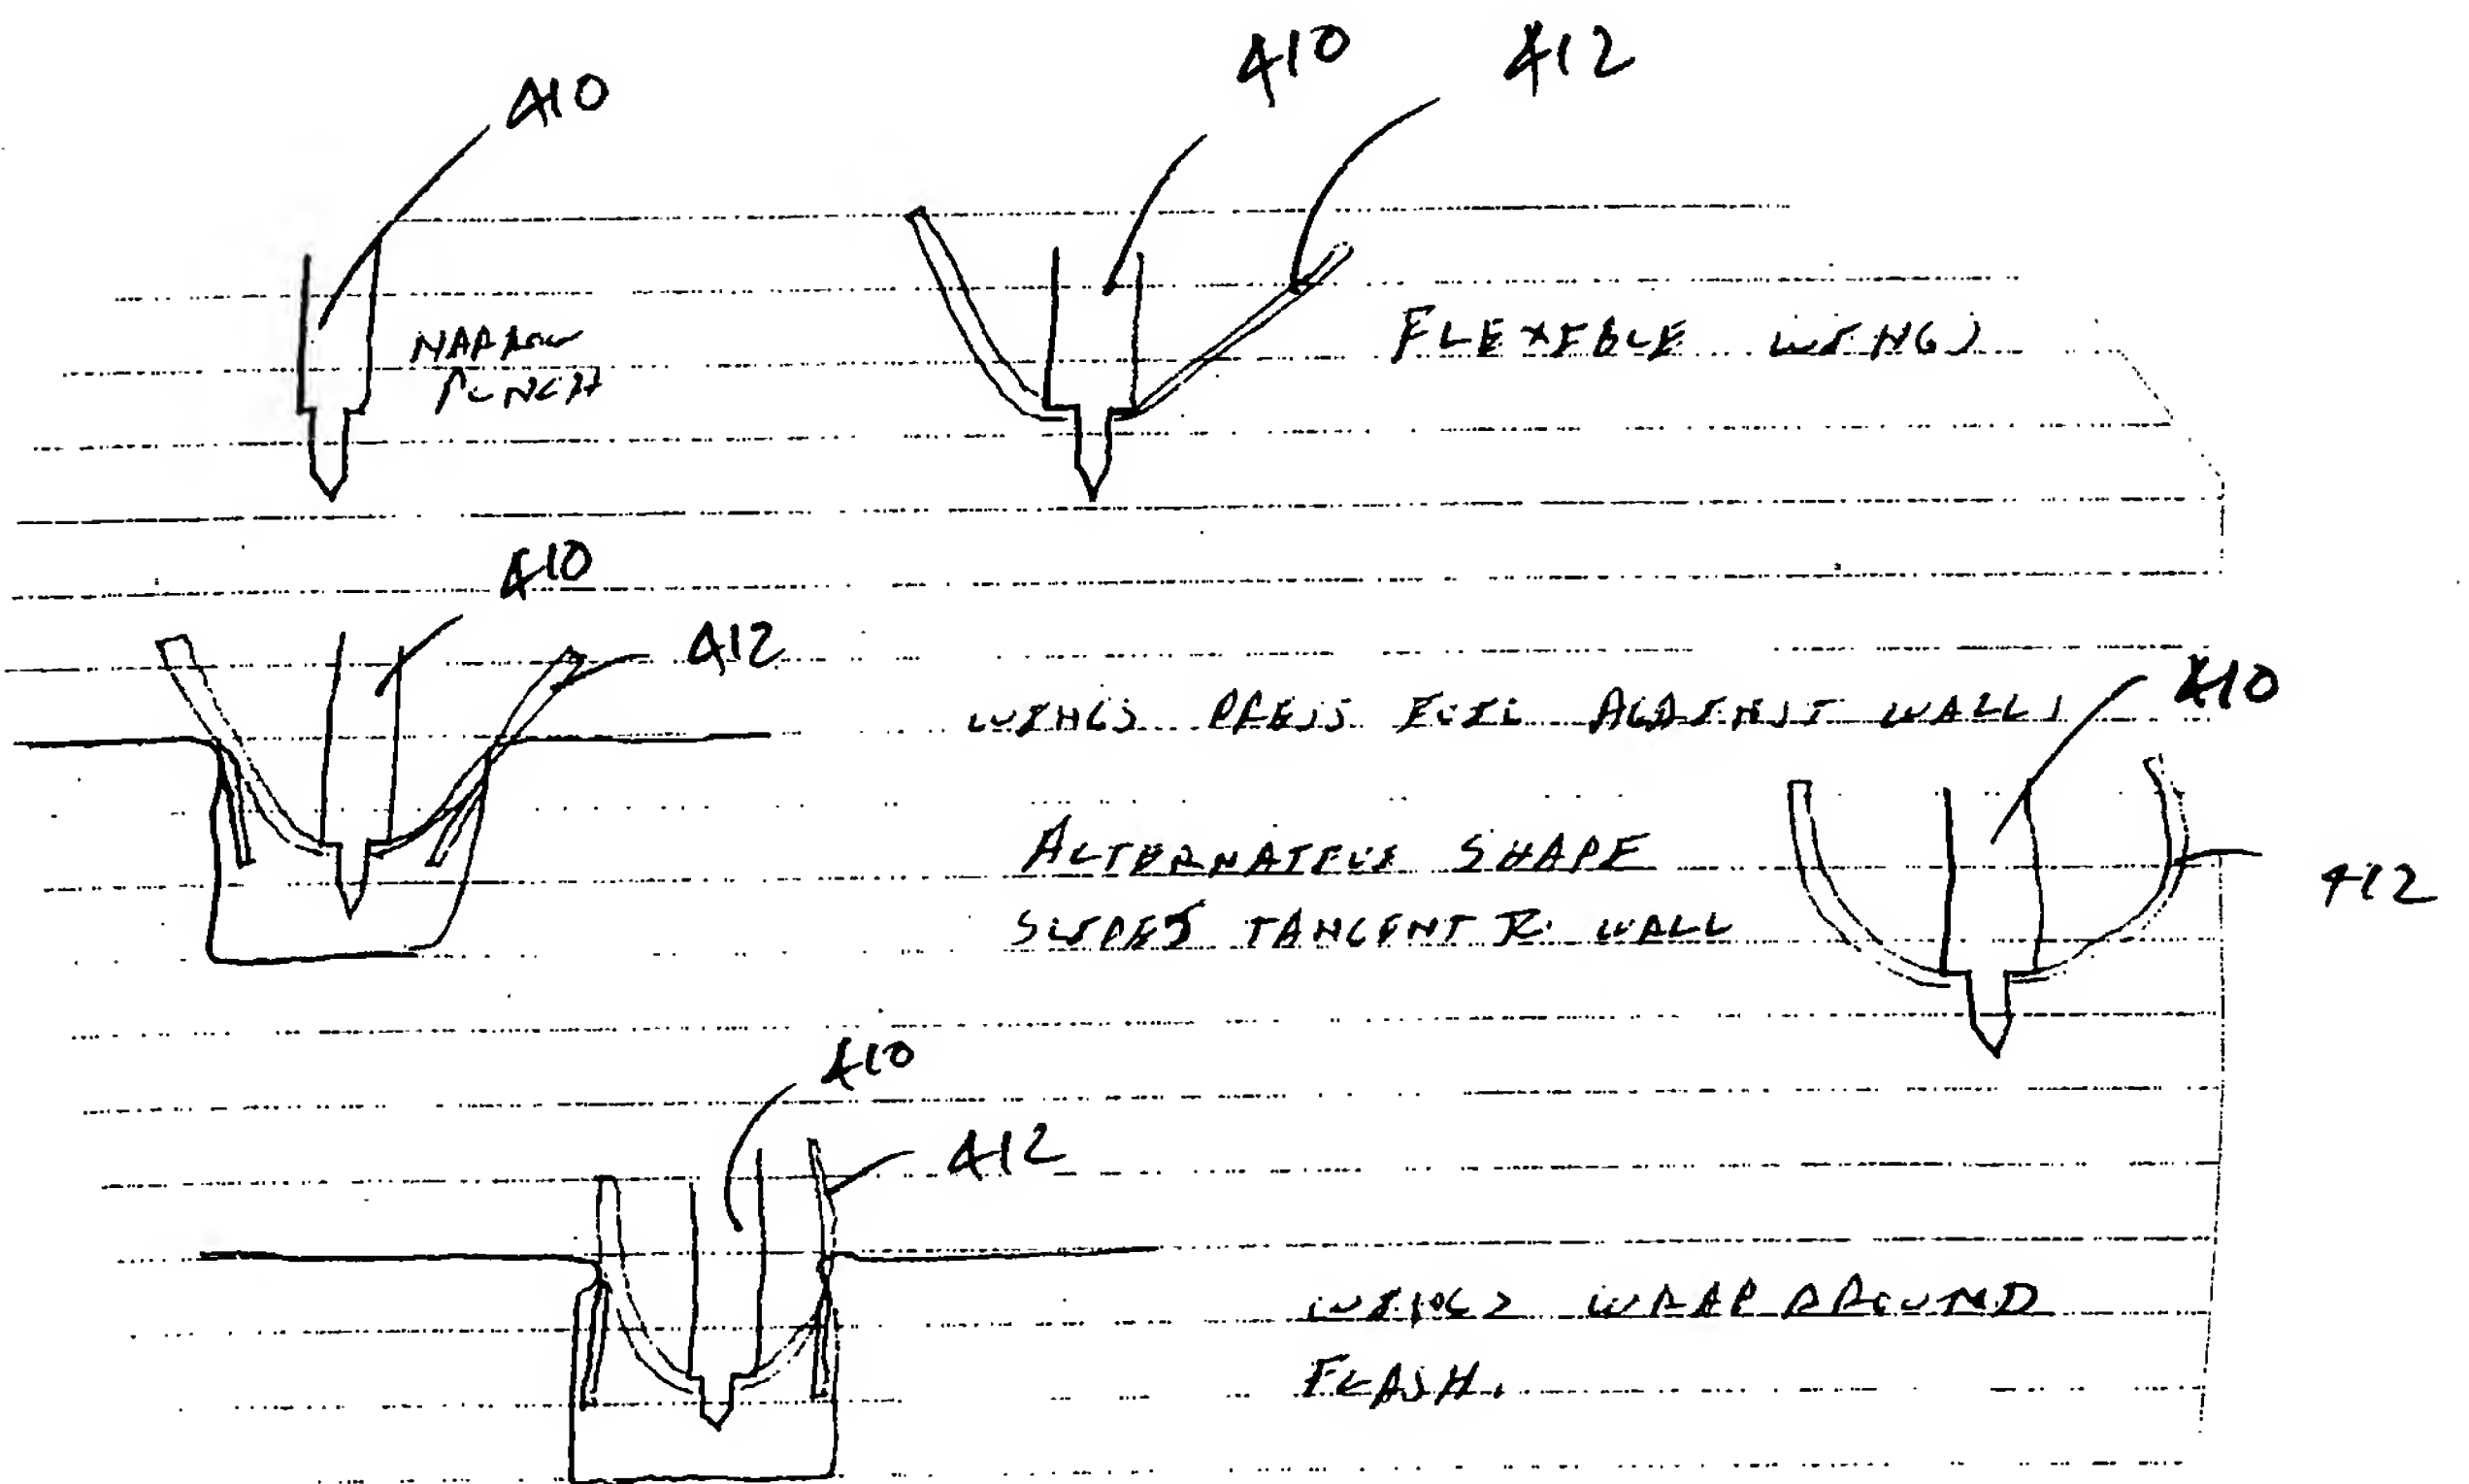 410
410 412
NARROW
PUNCH
FLEXIBLE WINGS
410
412
WINGS PRESS FOIL AGAINST WALLS
410
ALTERNATIVE SHAPE
412
SLIDES TANGENT TO WALL
410
412
WINGS WRAP AROUND
FLASH.